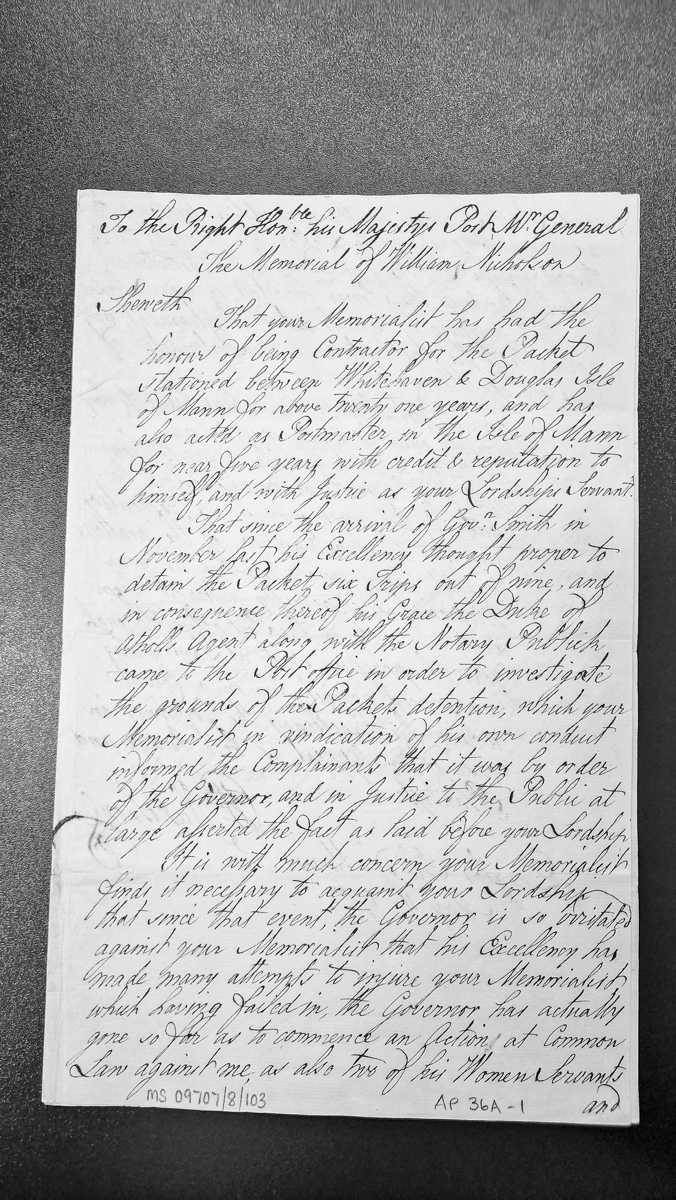 To the Right Hon:ble his Majestys Post Mr. General
The Memorial of William Nicholson
Sheweth
That your Memorialist has had the
honour of being Contractor for the Packet
stationed between Whitehaven & Douglas Isle
of Mann for above twenty one years, and has
also acted as Postmaster in the Isle of Mann
for near five years with credit & reputation to
himself, and with Justice as your Lordships Servant.
That since the arrival of Govr. Smith in
November last his Excellency thought proper to
detain the Packet six Trips out of nine, and
in consequence thereof his Grace the Duke of
Atholls Agent along with the Notary Publick
came to the Post office in order to investigate
the grounds of the Packets detention, which your
Memorialist in vindication of his own conduct
informed the Complainants that it was by order
of the Governor, and in Justice to the Public at
large asserted the fact as laid before your Lordship
It is with much concern your Memorialist
finds it necessary to acquaint your Lordship
that since that event, the Governor is so irritated
against your Memorialist that his Excellency has
made many attempts to injure your Memorialist
which having failed in, the Governor has actually
gone so far as to commence an Action at Common
Law against me, as also two of his Women Servants
and
MS 09707/8/103 AP 36A-1